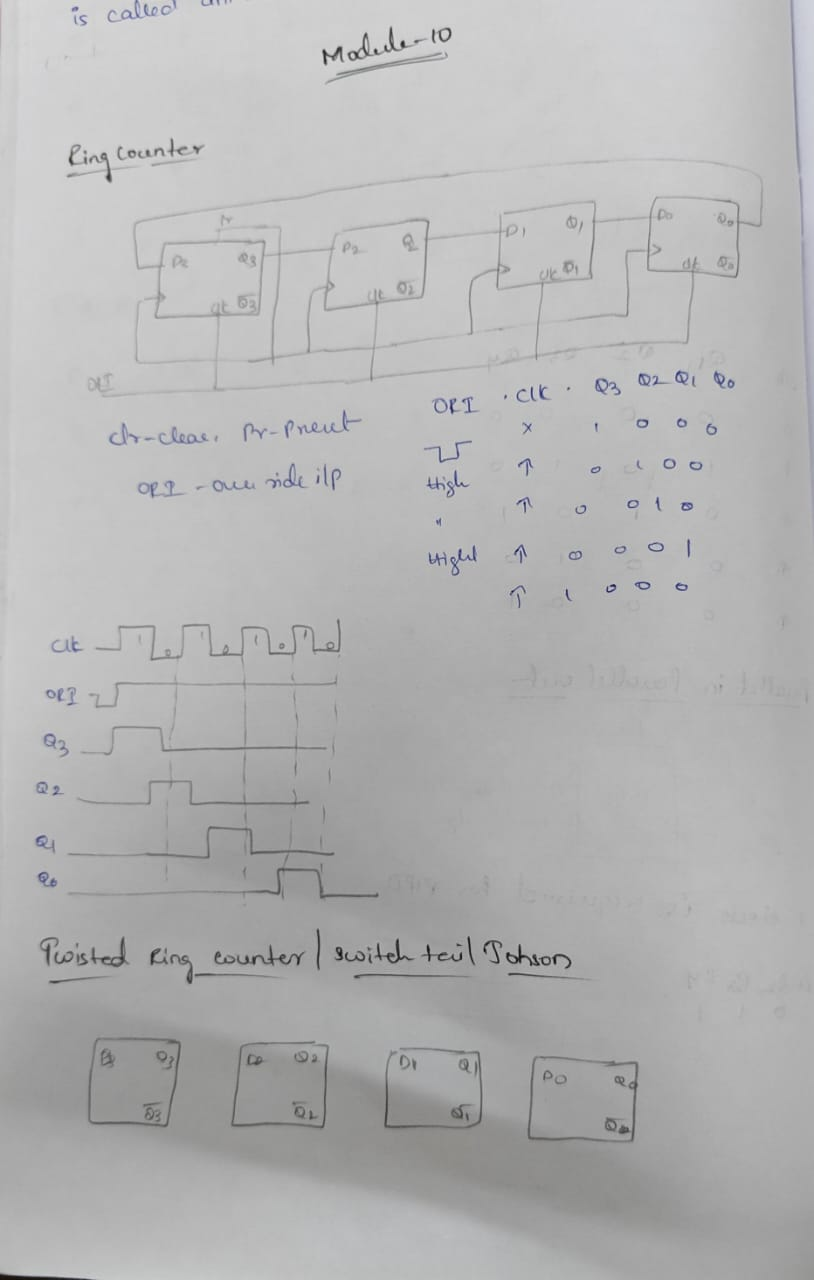 is called
Module-10
Ring counter
Pr
D2 Q3 D2 Q D1 Q1 D0 Q0
clk Q̅3 clk Q̅2 clk Q̅1 clk Q̅0
ORI
clr-clear, Pr-Preset
ORI - over ride i/p
ORI · Clk · Q3 Q2 Q1 Q0
x 1 0 0 0
High ↑ 0 1 0 0
" ↑ 0 0 1 0
Hight ↑ 0 0 0 1
↑ 1 0 0 0
Clk 1 0 1 0 1 0 1 0
ORI
Q3
Q2
Q1
Q0
Twisted Ring counter | switch tail Johson
D3 Q3 D2 Q2 D1 Q1 D0 Q0
Q̅3 Q̅2 Q̅1 Q̅0